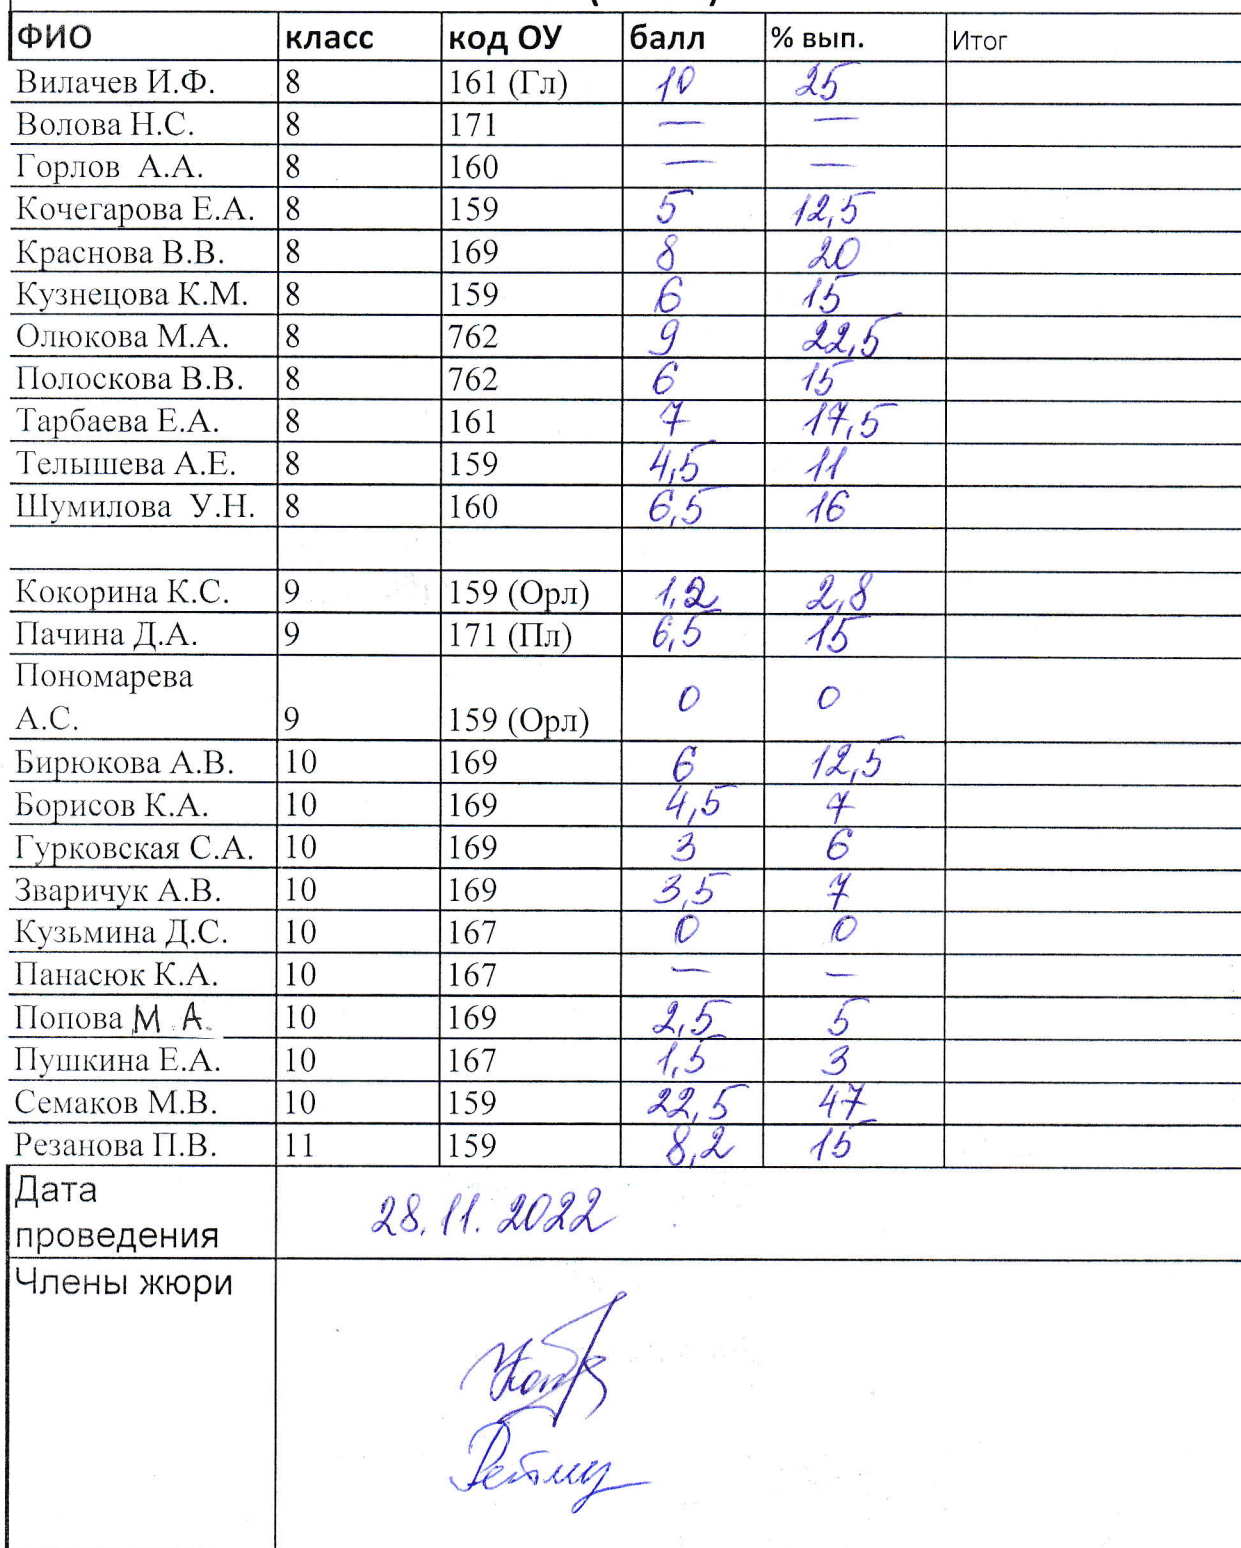 ФИО класс код ОУ балл % вып. Итог
Вилачев И.Ф. 8 161 (Гл) 10 25
Волова Н.С. 8 171 — —
Горлов А.А. 8 160 — —
Кочегарова Е.А. 8 159 5 12,5
Краснова В.В. 8 169 8 20
Кузнецова К.М. 8 159 6 15
Олюкова М.А. 8 762 9 22,5
Полоскова В.В. 8 762 6 15
Тарбаева Е.А. 8 161 7 17,5
Телышева А.Е. 8 159 4,5 11
Шумилова У.Н. 8 160 6,5 16
Кокорина К.С. 9 159 (Орл) 1,2 2,8
Пачина Д.А. 9 171 (Пл) 6,5 15
Пономарева
А.С. 9 159 (Орл) 0 0
Бирюкова А.В. 10 169 6 12,5
Борисов К.А. 10 169 4,5 7
Гурковская С.А. 10 169 3 6
Зваричук А.В. 10 169 3,5 7
Кузьмина Д.С. 10 167 0 0
Панасюк К.А. 10 167 — —
Попова М.А. 10 169 2,5 5
Пушкина Е.А. 10 167 1,5 3
Семаков М.В. 10 159 22,5 47
Резанова П.В. 11 159 8,2 15
Дата
проведения 28.11.2022
Члены жюри